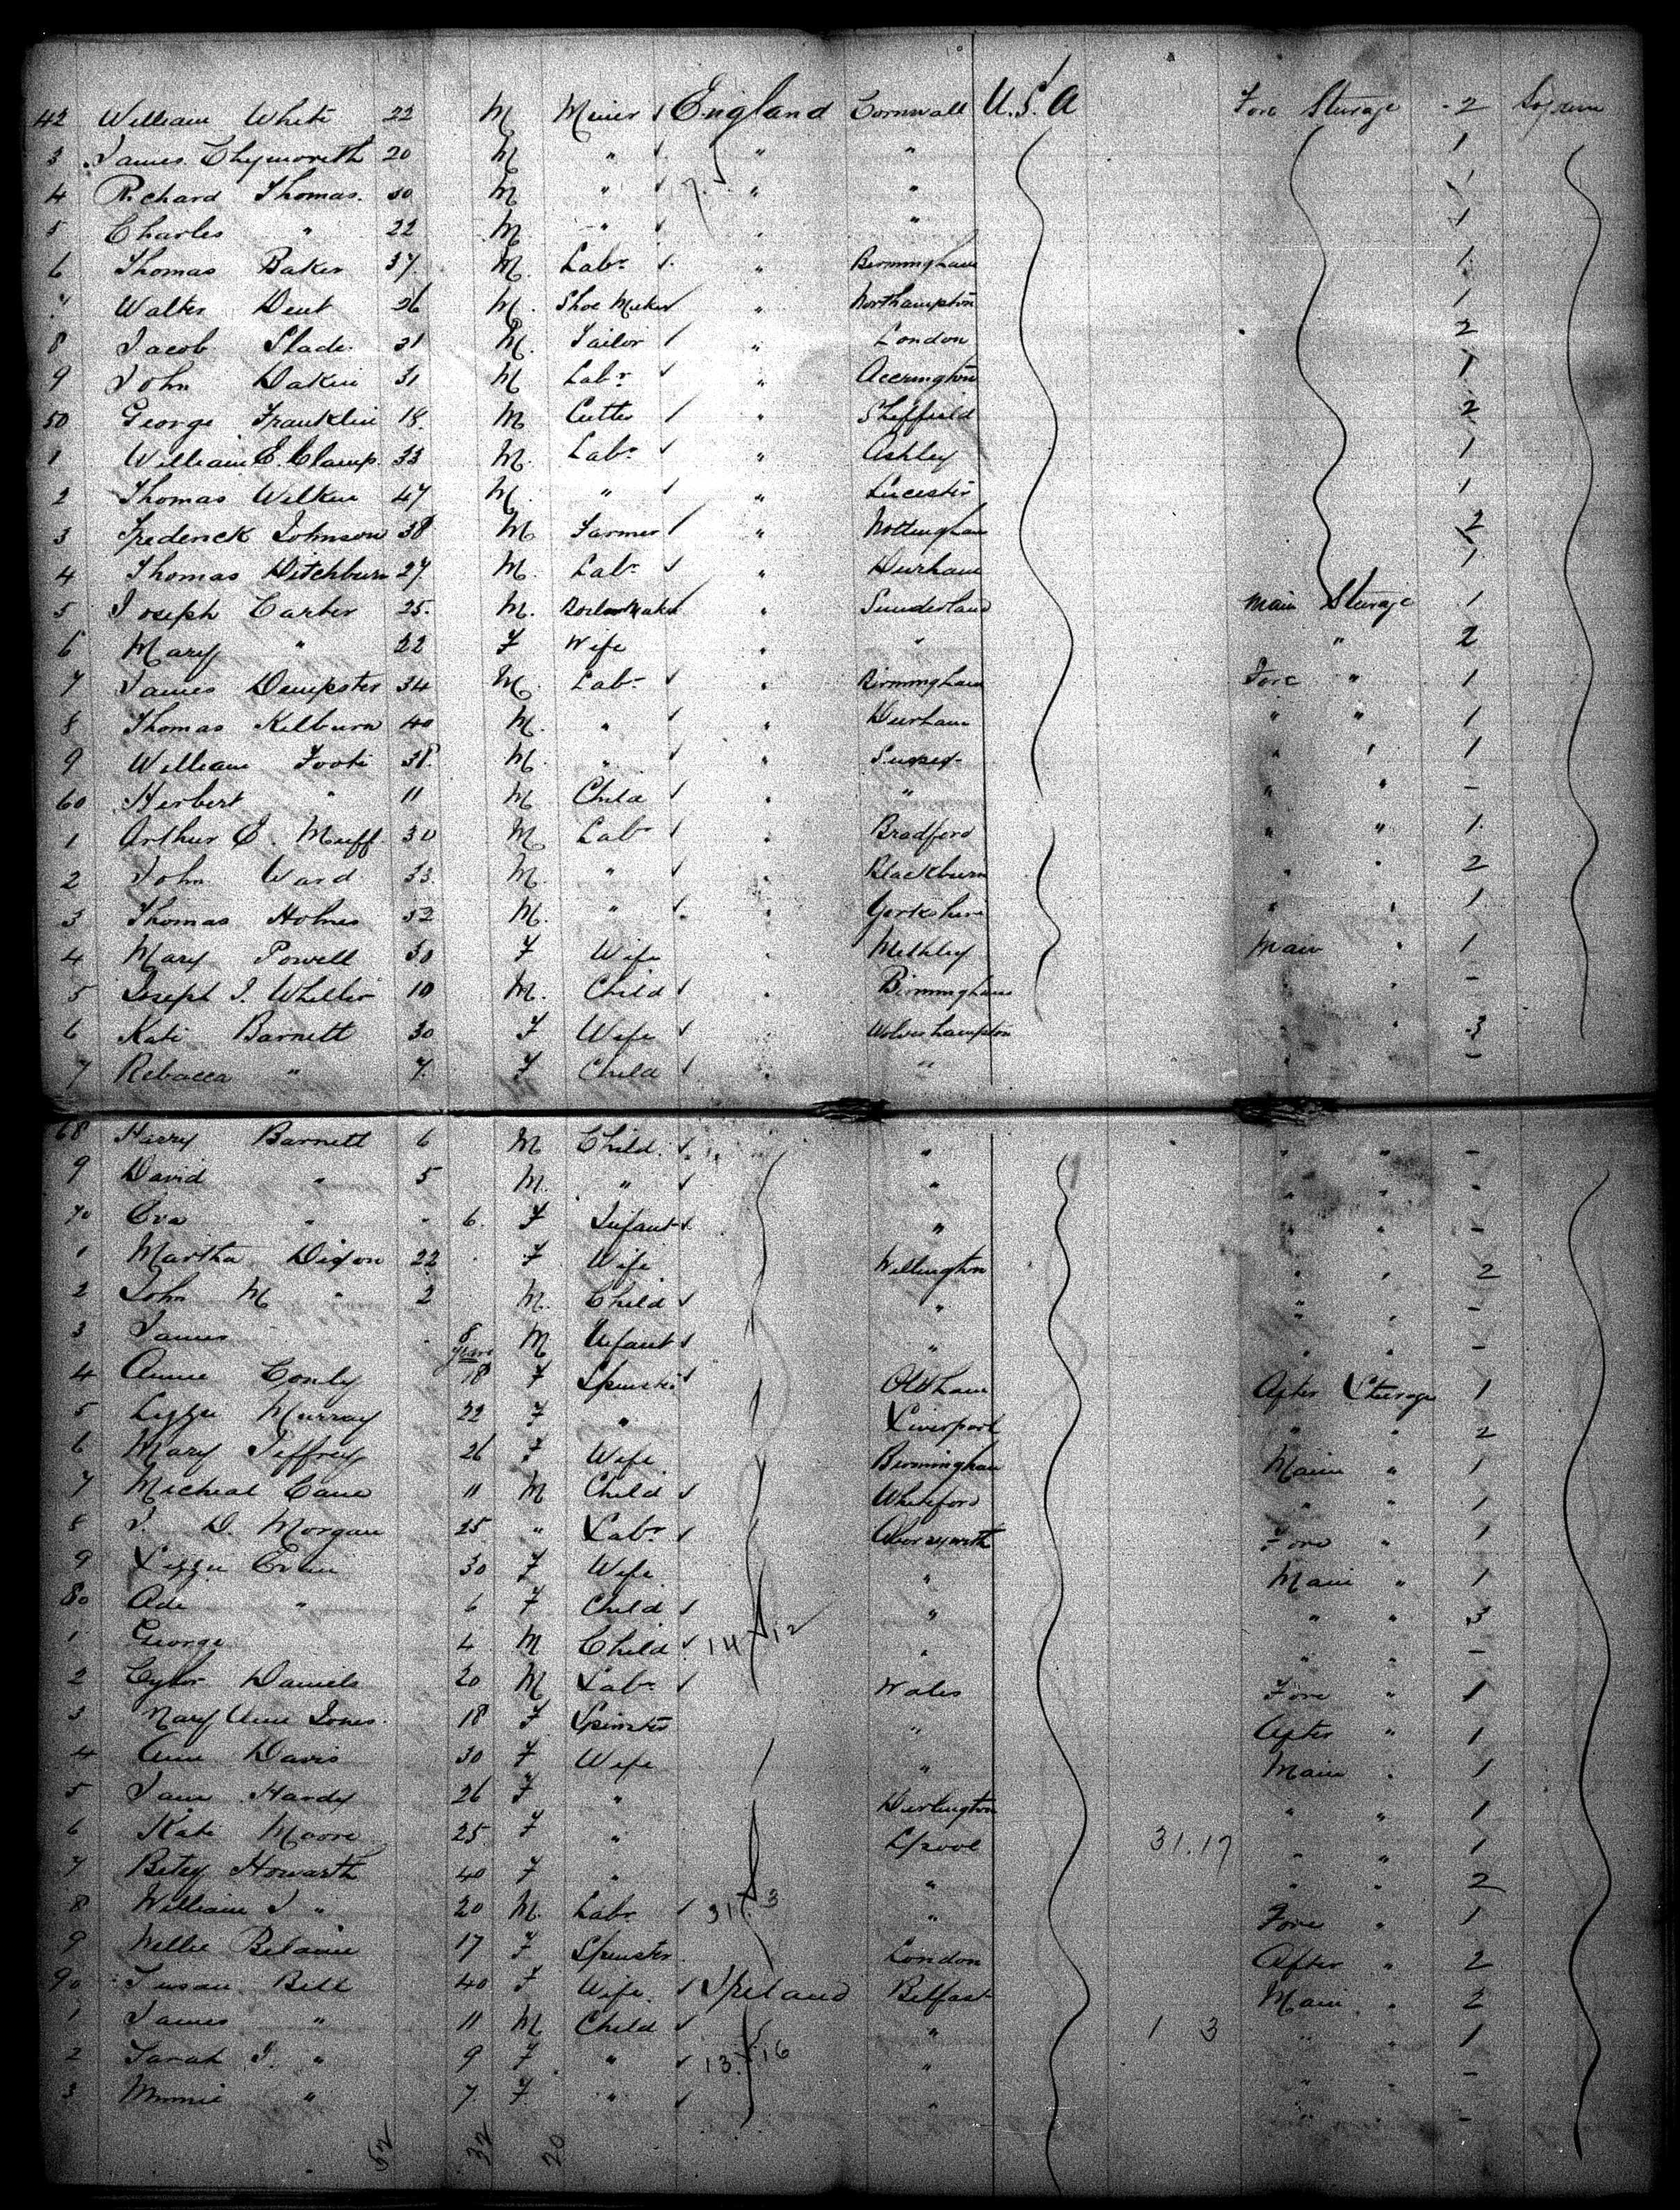 42 William White 22 M Miner England Cornwall U.S.A Fore Sturage 2 Sojourn
3 James Chymoreth 20 M " " " 1
4 Richard Thomas 30 M " " " 1
5 Charles " 22 M " " " 1
6 Thomas Baker 37 M Labr " Birmingham 1
" Walter Dent 26 M Shoe Maker " Northampton 1
8 Jacob Slade 31 M Tailor " London 2
9 John Dakin 31 M Labr " Accrington 1
50 George Franklin 18 M Cutler " Sheffield 2
1 William E. Clamp 33 M Labr " Ashley 1
2 Thomas Wilkin 47 M " " Leicester 1
3 Frederick Johnson 38 M Farmer " Nottingham 2
4 Thomas Ditchburn 27 M Labr " Durham 1
5 Joseph Carter 25 M Boilermaker " Sunderland Main Sturage 1
6 Mary " 22 F Wife " " " 2
7 James Dempster 34 M Labr " Birmingham Fore " 1
8 Thomas Kilburn 40 M " " Durham " " 1
9 William Foote 38 M " " Sussex " " 1
60 Herbert " 11 M Child " " " " -
1 Arthur E. Muff 30 M Labr " Bradford " " 1
2 John Ward 33 M " " Blackburn " " 2
3 Thomas Holmes 32 M " " Yorkshire " " 1
4 Mary Powell 30 F Wife " Methley Main " 1
5 Joseph J. Wheller 10 M Child " Birmingham " -
6 Kate Barnett 30 F Wife " Wolverhampton " 3
7 Rebacca " 7 F Child " " " -
68 Harry Barnett 6 M Child " " " -
9 David " 5 M " " " " -
70 Eva " " 6 F Infant " " " -
1 Martha Dixon 22 F Wife Wellington " " 2
2 John M " 2 M Child " " " -
3 James 8 M Infant " " " -
4 Annie Conly years 18 F Spinster Oldham After Sturage 1
5 Lizzie Murray 22 F " Liverpool " " 2
6 Mary Jeffrey 26 F Wife Birmingham Main " 1
7 Micheal Cane 11 M Child Whiteford " " 1
8 J. D. Morgan 25 " Labr Aborsywith Fore " 1
9 Lizzie Evin 30 F Wife " Main " 1
80 Ada " 6 F Child " " " 3
1 George 4 M Child 14 12 " " " -
2 Daniels 20 M Labr Wales Fore " 1
3 Mary Ann Jones 18 F Spinster " After " 1
4 Ann Davis 30 F Wife " Main " 1
5 Jane Hardy 26 F " Darlington " " 1
6 Kate Moore 25 F " Lpool 31.17 " " 1
7 Betsy Howarth 40 F " " " " 2
8 William J " 20 M Labr 31 3 " Fore " 1
9 Nellie 17 F Spinster London After " 2
90 Susan Bell 40 F Wife Ireland Belfast Main " 2
1 James " 11 M Child " 1 3 " 1
2 Sarah J. " 9 F " 13 16 " " -
3 Minnie " 7 F " " " " -
52 32 20